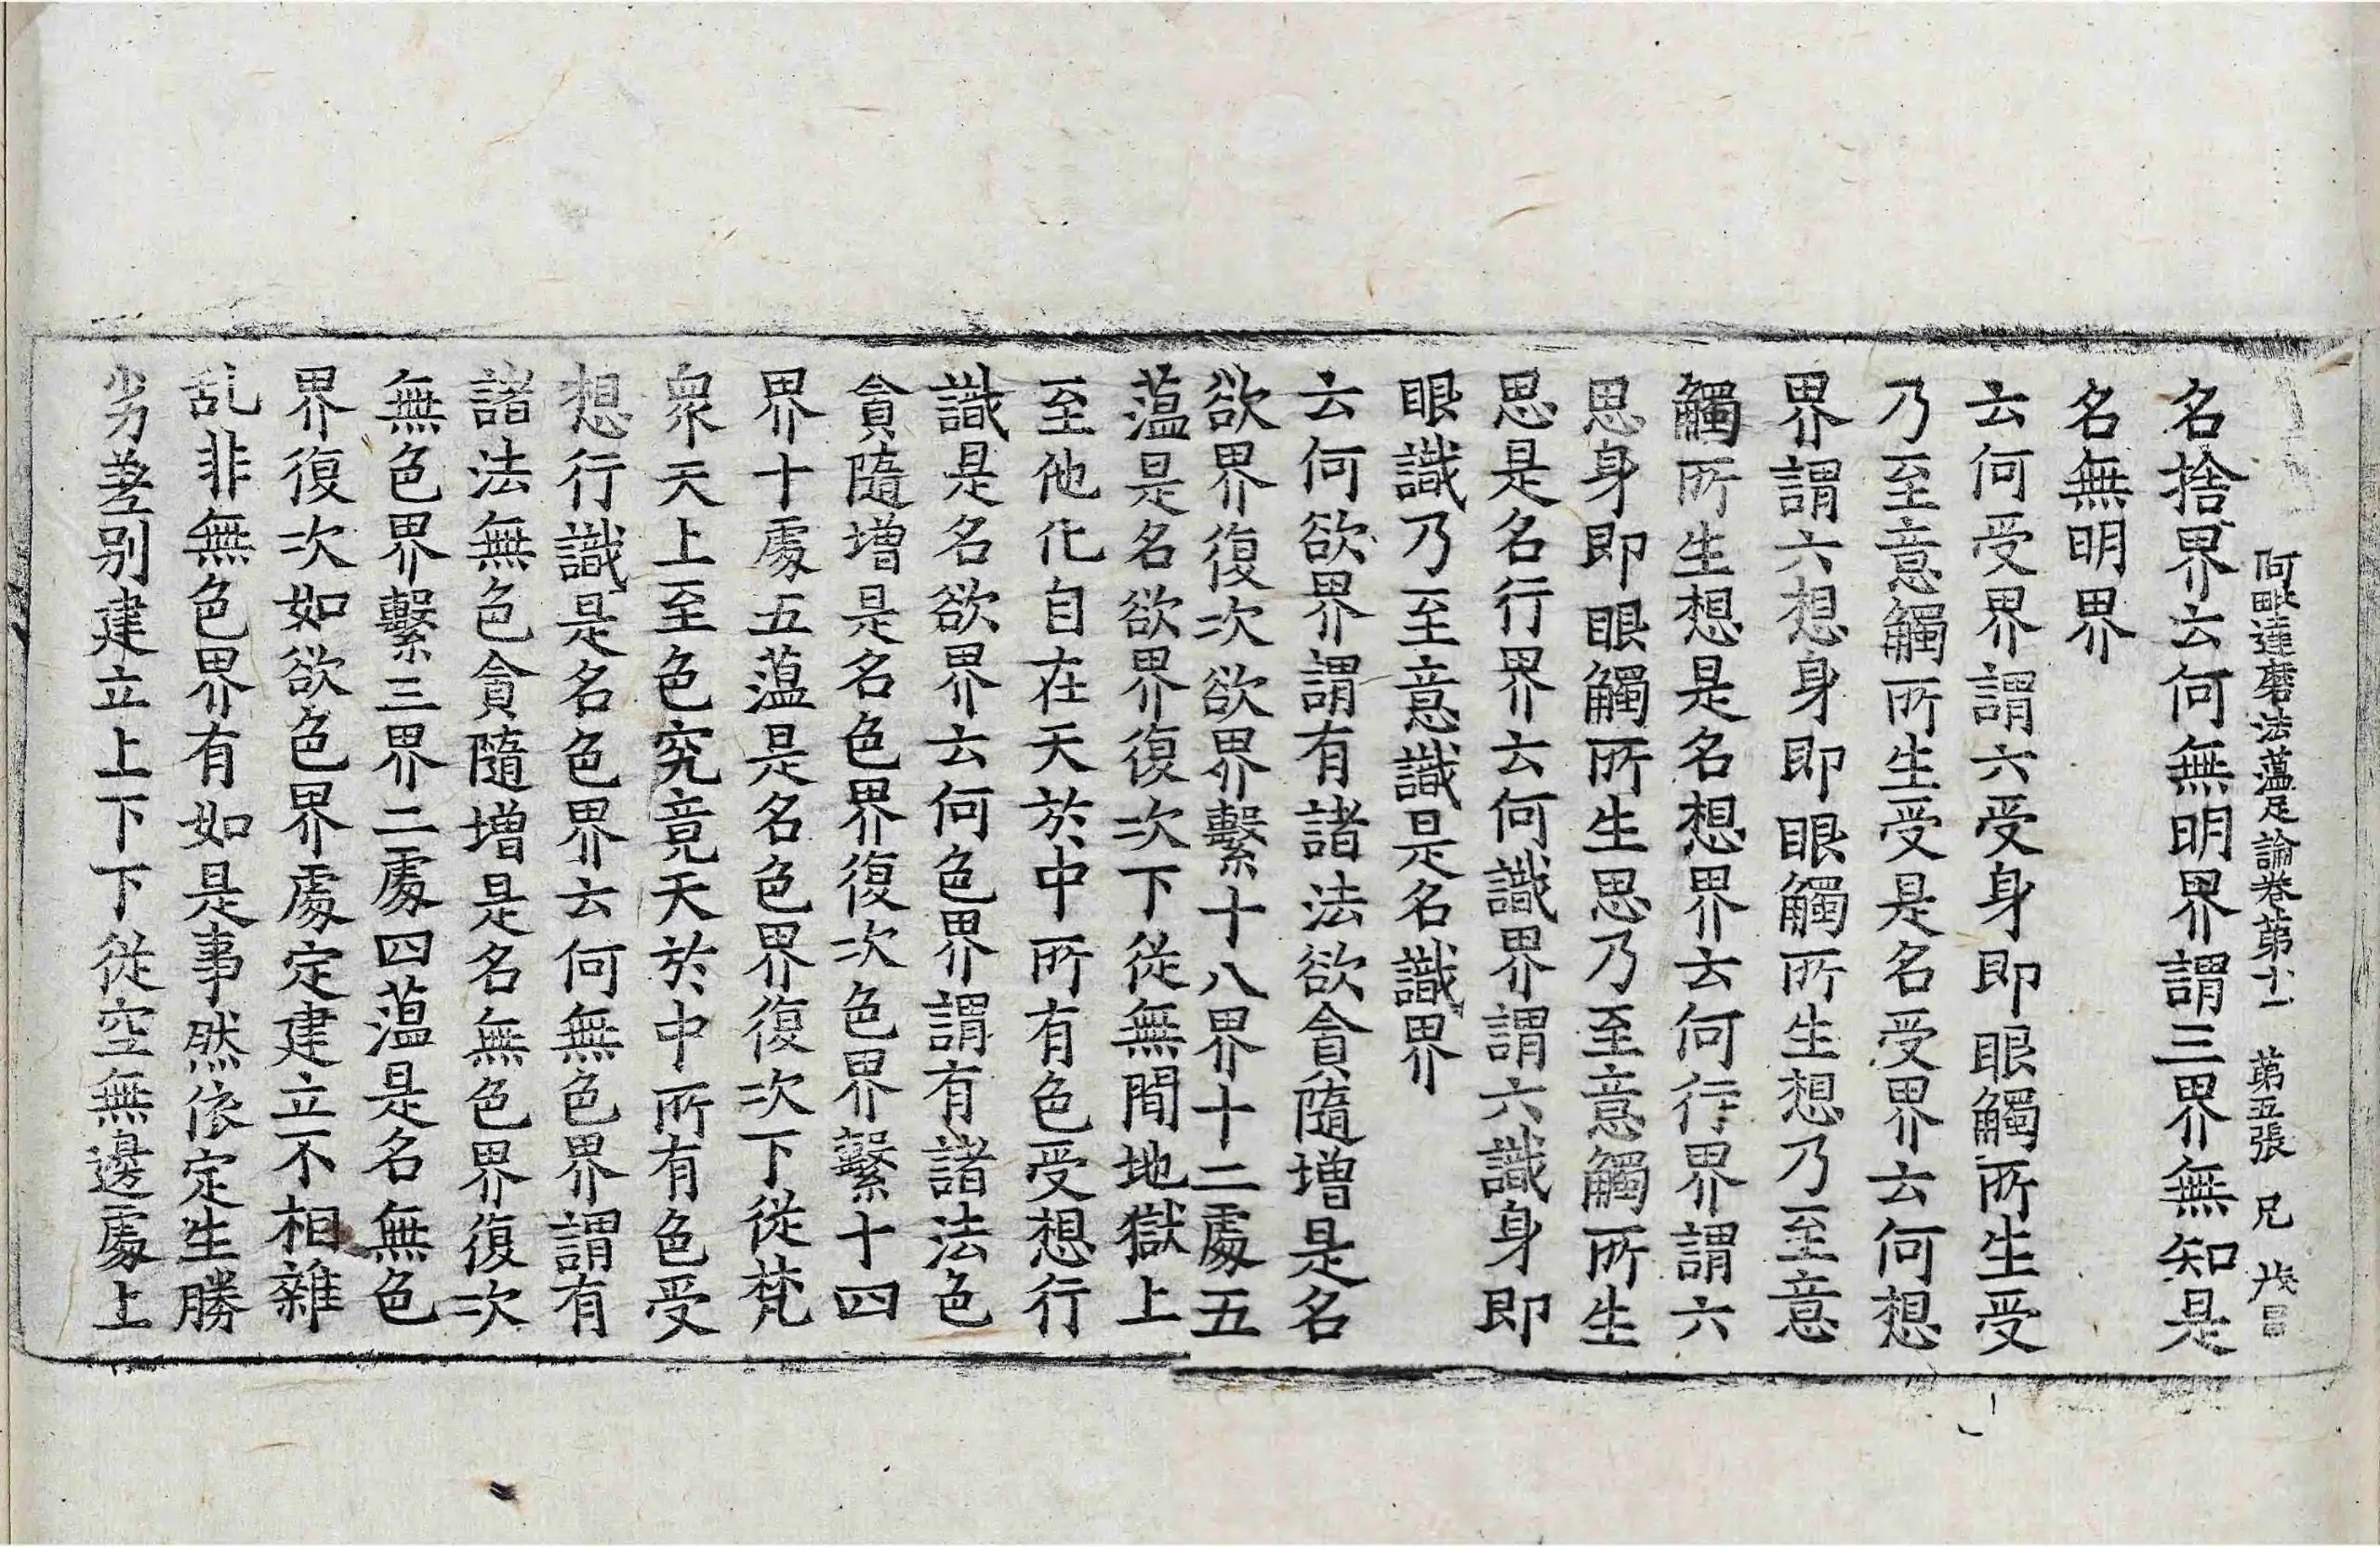 阿毗達磨法蘊足論卷第十一 第五張 兄
名捨界云何無明界謂三界無知是
名無明界
云何受界謂六受身即眼觸所生受
乃至意觸所生受是名受界云何想
界謂六想身即眼觸所生想乃至意
觸所生想是名想界云何行界謂六
思身即眼觸所生思乃至意觸所生
思是名行界云何識界謂六識身即
眼識乃至意識是名識界
云何欲界謂有諸法欲貪隨增是名
欲界復次欲界繫十八界十二處五
蘊是名欲界復次下從無間地獄上
至他化自在天於中所有色受想行
識是名欲界云何色界謂有諸法色
貪隨增是名色界復次色界繫十四
界十處五蘊是名色界復次下從梵
衆天上至色究竟天於中所有色受
想行識是名色界云何無色界謂有
諸法無色貪隨增是名無色界復次
無色界繫三界二處四蘊是名無色
界復次如欲色界處定建立不相雜
乱非無色界有如是事然依定生勝
劣差别建立上下下從空無邊處上